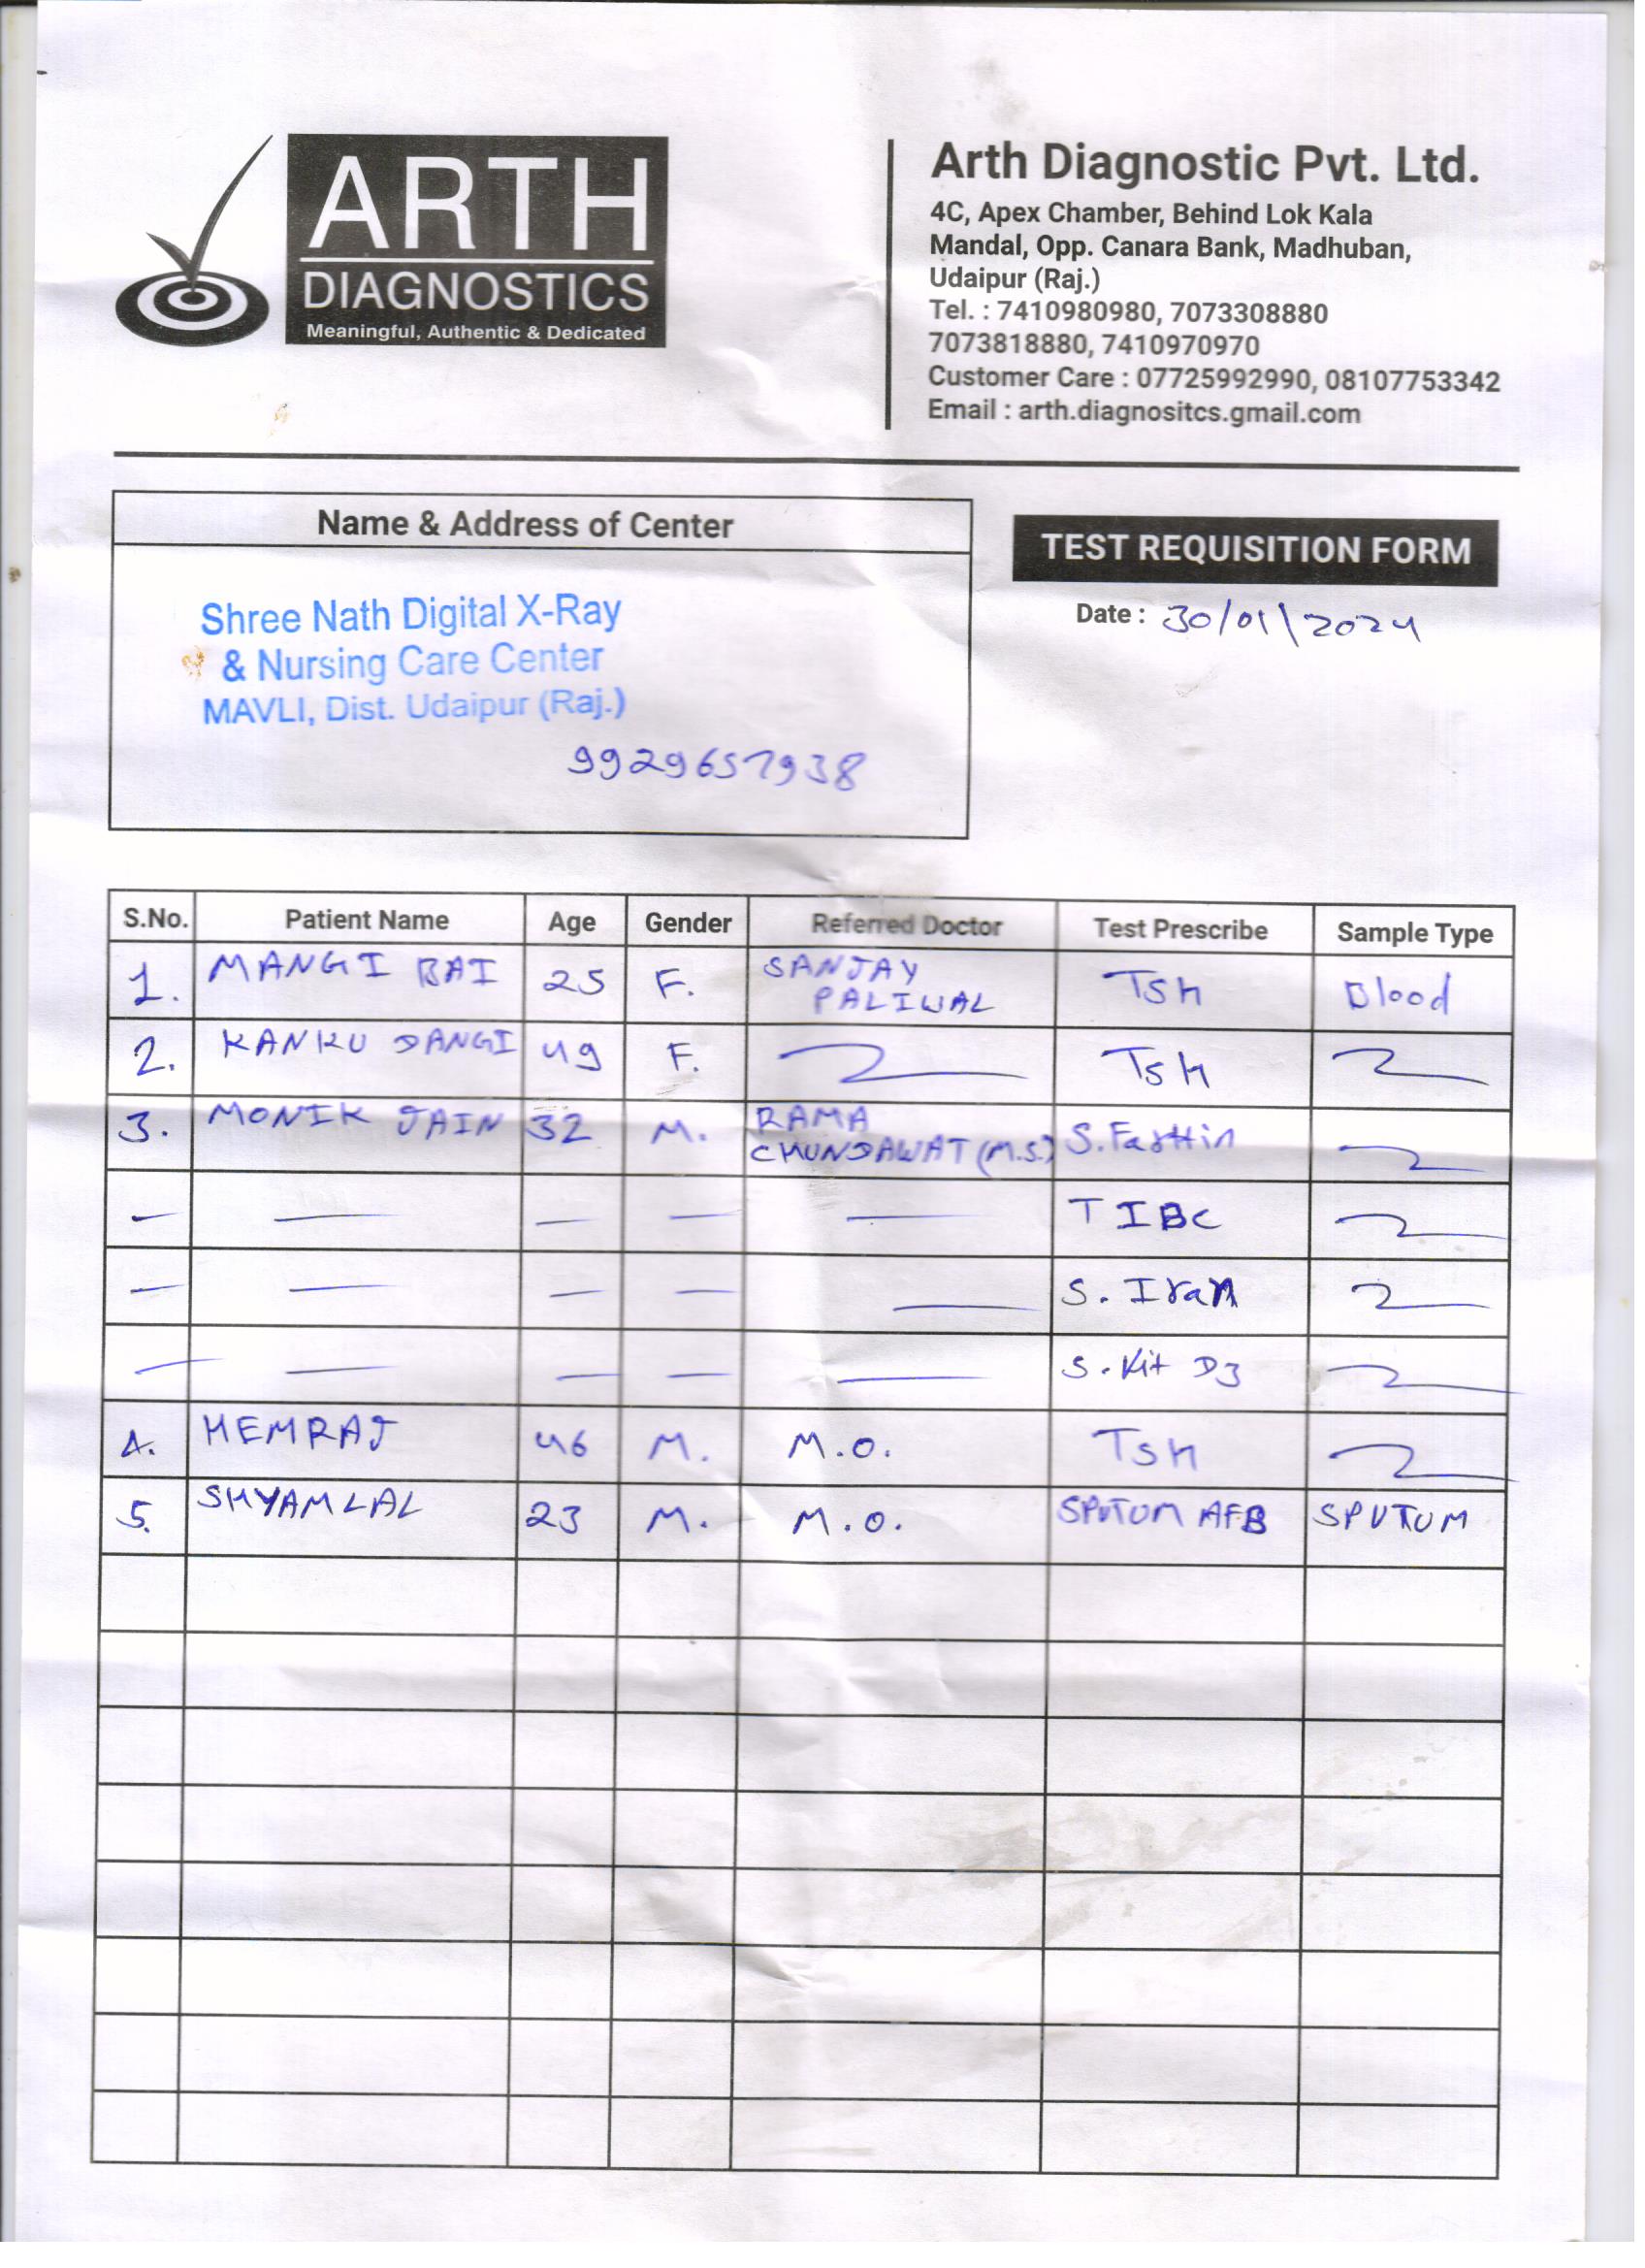 ARTH
DIAGNOSTICS
Meaningful, Authentic & Dedicated
Arth Diagnostic Pvt. Ltd.
4C, Apex Chamber, Behind Lok Kala
Mandal, Opp. Canara Bank, Madhuban,
Udaipur (Raj.)
Tel. : 7410980980, 7073308880
7073818880, 7410970970
Customer Care : 07725992990, 08107753342
Email : arth.diagnositcs.gmail.com
Name & Address of Center
Shree Nath Digital X-Ray
& Nursing Care Center
MAVLI, Dist. Udaipur (Raj.)
9929657938
TEST REQUISITION FORM
Date : 30/01/2024
S.No. Patient Name Age Gender Referred Doctor Test Prescribe Sample Type
1. MANGI BAI 25 F. SANJAY PALIWAL TSH Blood
2. KANKU DANGI 49 F. TSH
3. MONIK JAIN 32 M. RAMA CHUNDAWAT (M.S.) S.
— — — — — TIBC
— — — — — S. Iran
— — — — — S. Vit D3
4. HEMRAJ 46 M. M.O. TSH
5. SHYAMLAL 23 M. M.O. SPUTUM AFB SPUTUM